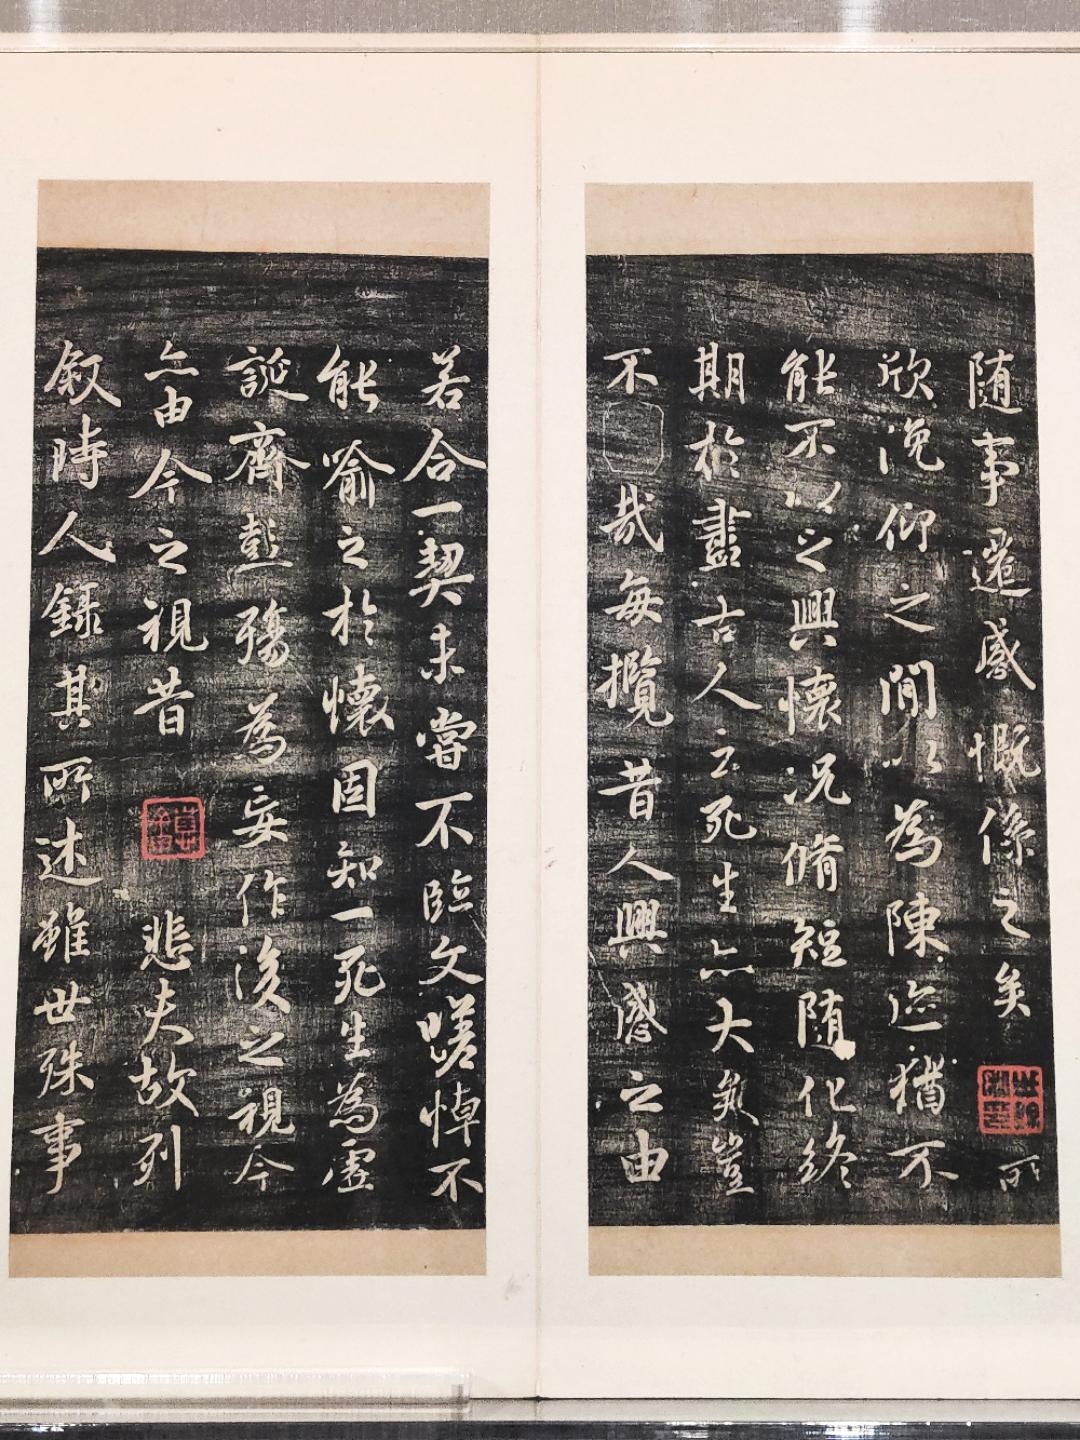 随事遷感慨係之矣 所
欣俛仰之間以為陳迹猶不
能不以之興懷況脩短随化終
期於盡古人云死生亦大矣豈
不哉每攬昔人興感之由
若合一契未嘗不臨文嗟悼不
能喻之於懷固知一死生為虛
誕齊彭殤為妄作後之視今
亦由今之視昔 悲夫故列
叙時人錄其所述雖世殊事